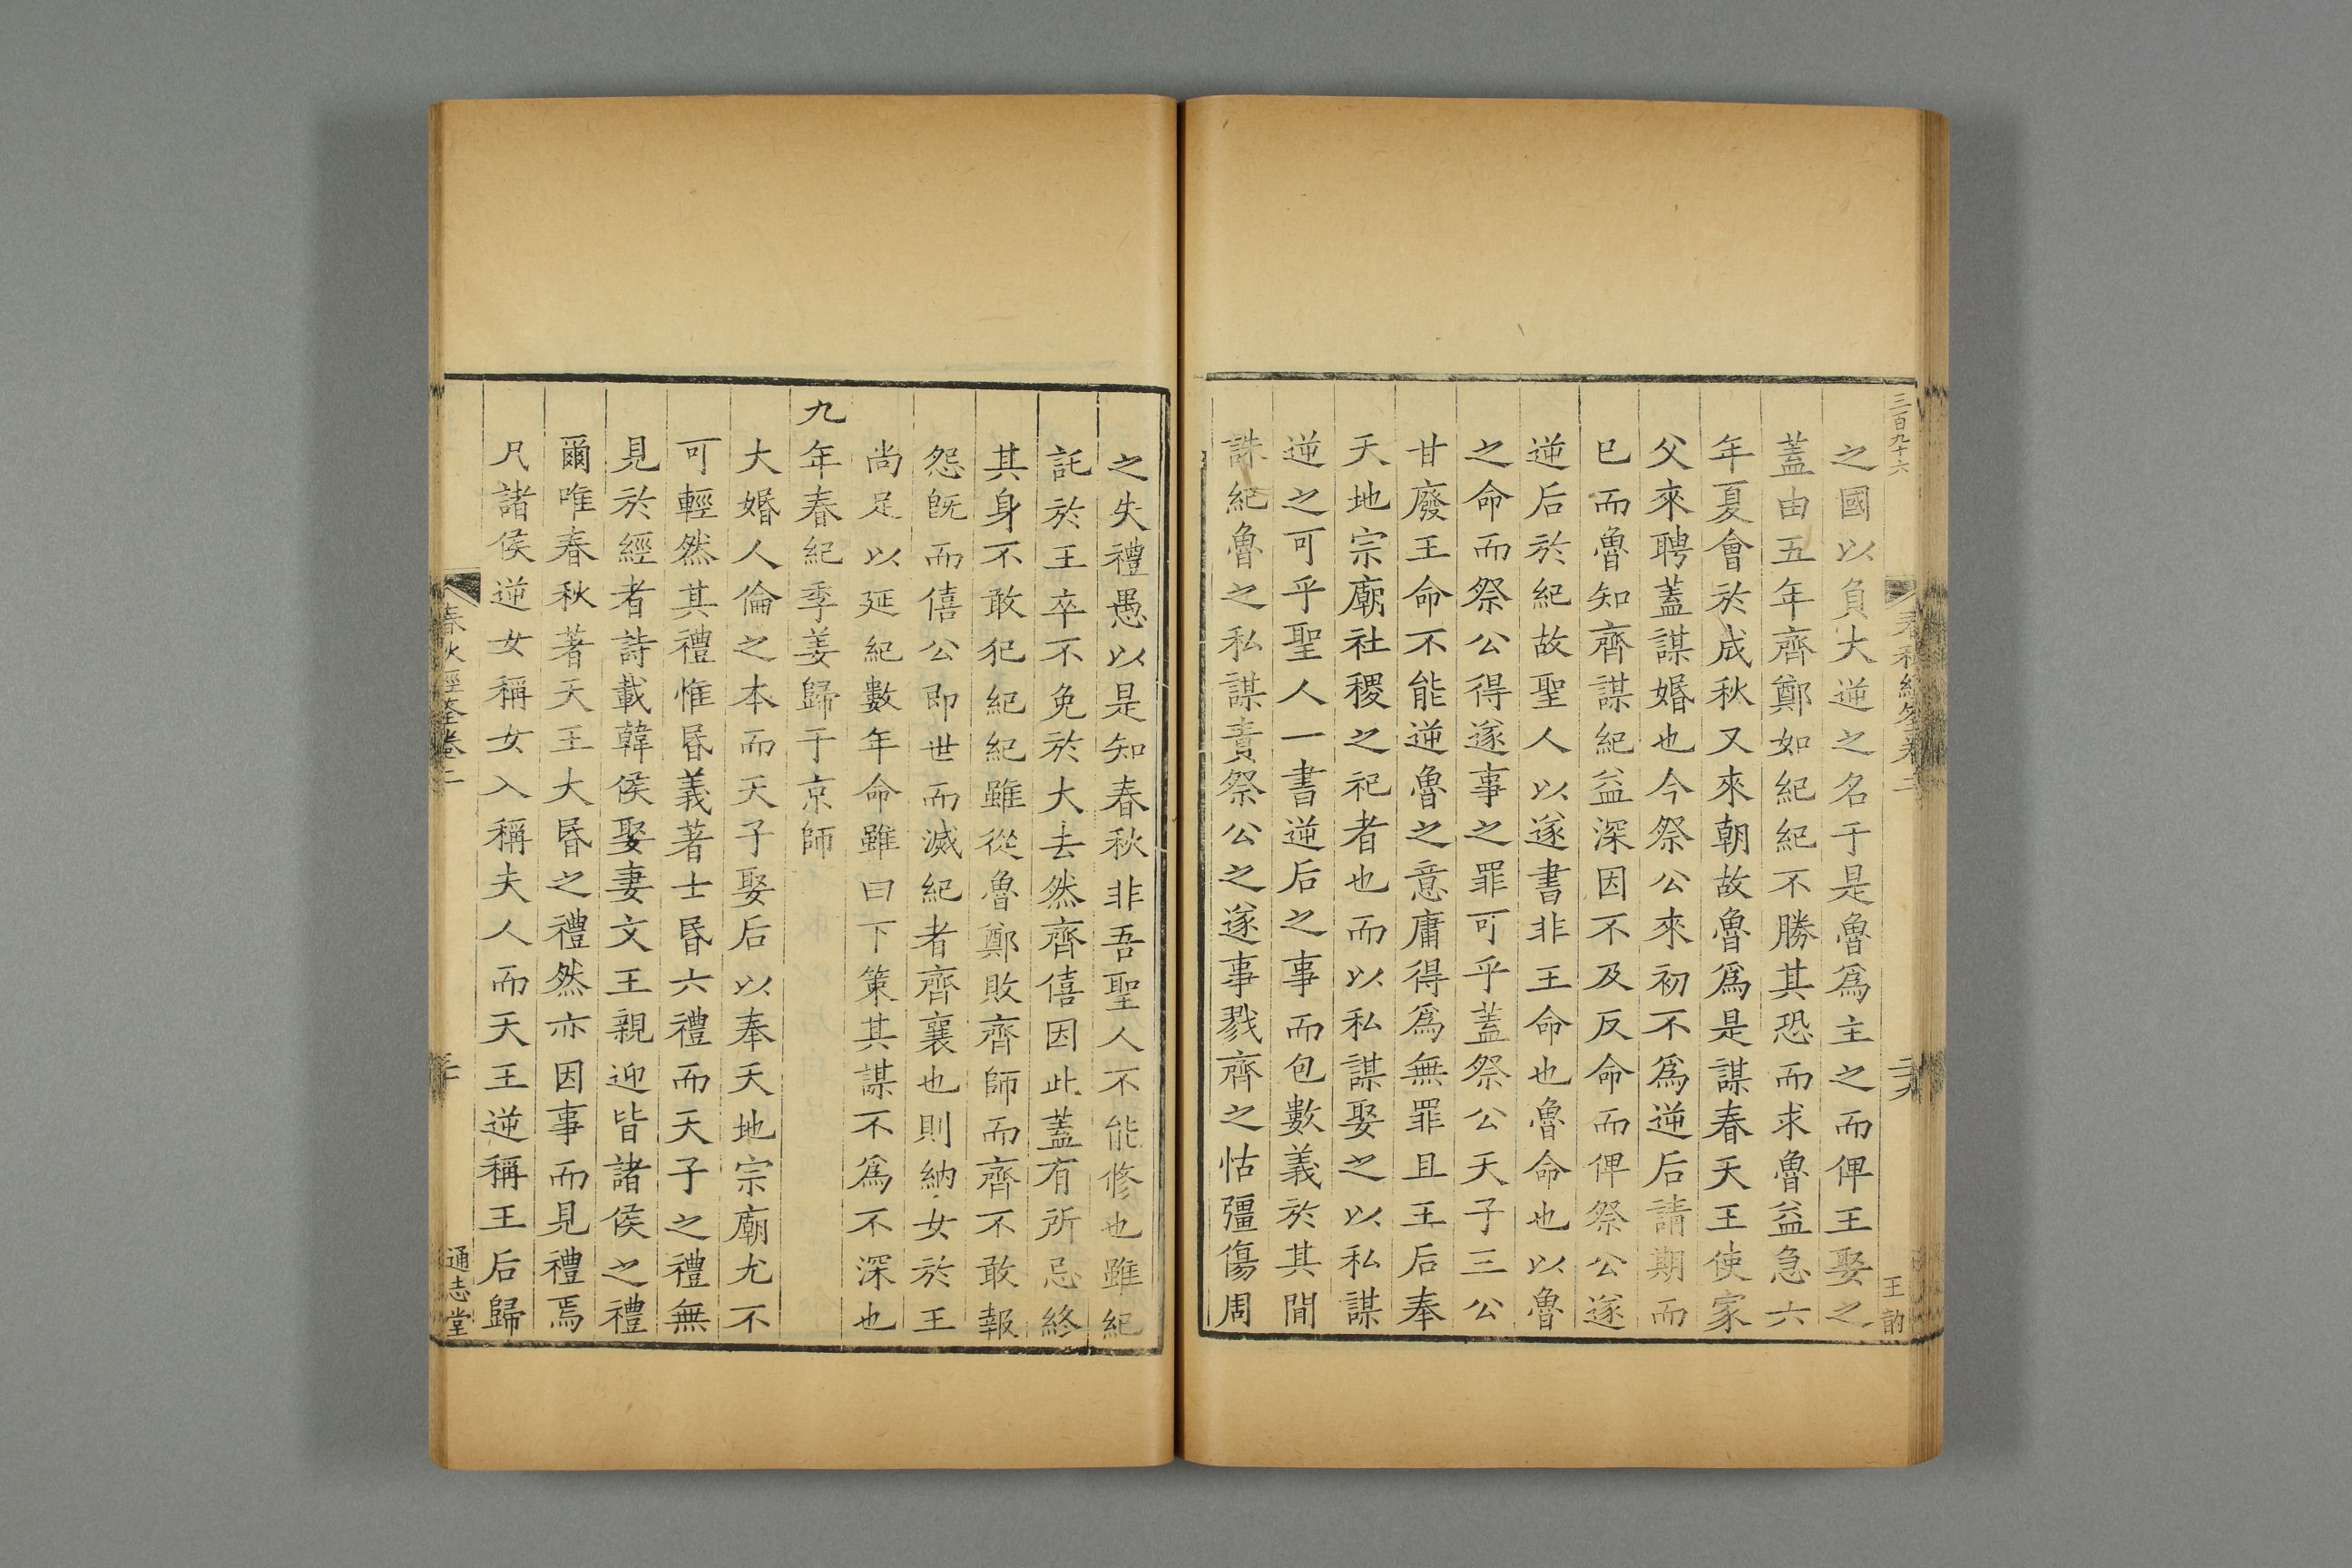 三百九十六
王韵
之國以負大逆之名于是魯爲主之而俾王娶之
蓋由五年齊鄭如紀紀不勝其恐而求魯益急六
年夏會於成秋又來朝故魯爲是謀春天王使家
父來聘蓋謀婚也今祭公來初不爲逆后請期而
已而魯知齊謀紀益深因不及反命而俾祭公遂
逆后於紀故聖人以遂書非王命也魯命也以魯
之命而祭公得遂事之罪可乎蓋祭公天子三公
甘廢王命不能逆魯之意庸得爲無罪且王后奉
天地宗廟社稷之祀者也而以私謀娶之以私謀
逆之可乎聖人一書逆后之事而包數義於其間
誅紀魯之私謀責祭公之遂事戮齊之怙彊傷周
之失禮愚以是知春秋非吾聖人不能修也雖紀
託於王卒不免於大去然齊僖因此蓋有所忌終
其身不敢犯紀紀雖從魯鄭敗齊師而齊不敢報
怨旣而僖公即世而滅紀者齊襄也則納女於王
尚足以延紀數年命雖曰下策其謀不爲不深也
九年春紀季姜歸于京師
大婚人倫之本而天子娶后以奉天地宗廟尤不
可輕然其禮惟昏義著士昏六禮而天子之禮無
見於經者詩載韓侯娶妻文王親迎皆諸侯之禮
爾唯春秋著天王大昏之禮然亦因事而見禮焉
凡諸侯逆女稱女入稱夫人而天王逆稱王后歸
春秋經筌卷二
通志堂